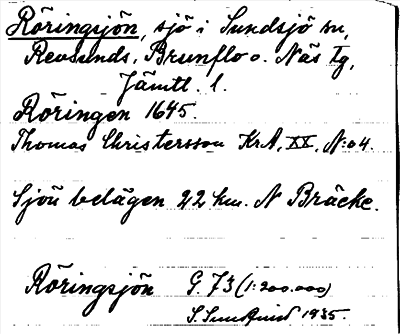 Röringsjön, sjö i Sundsjö sn,
Revsunds, Brunflo o. Näs tg,
Jämtl. l.
Röringen 1645.
Thomas Christersson KrA, XX, N:o 4.
Sjön belägen 22 km. N Bräcke.
Röringsjön G. 73 (1:200.000)
S. Sundqvist 1935.